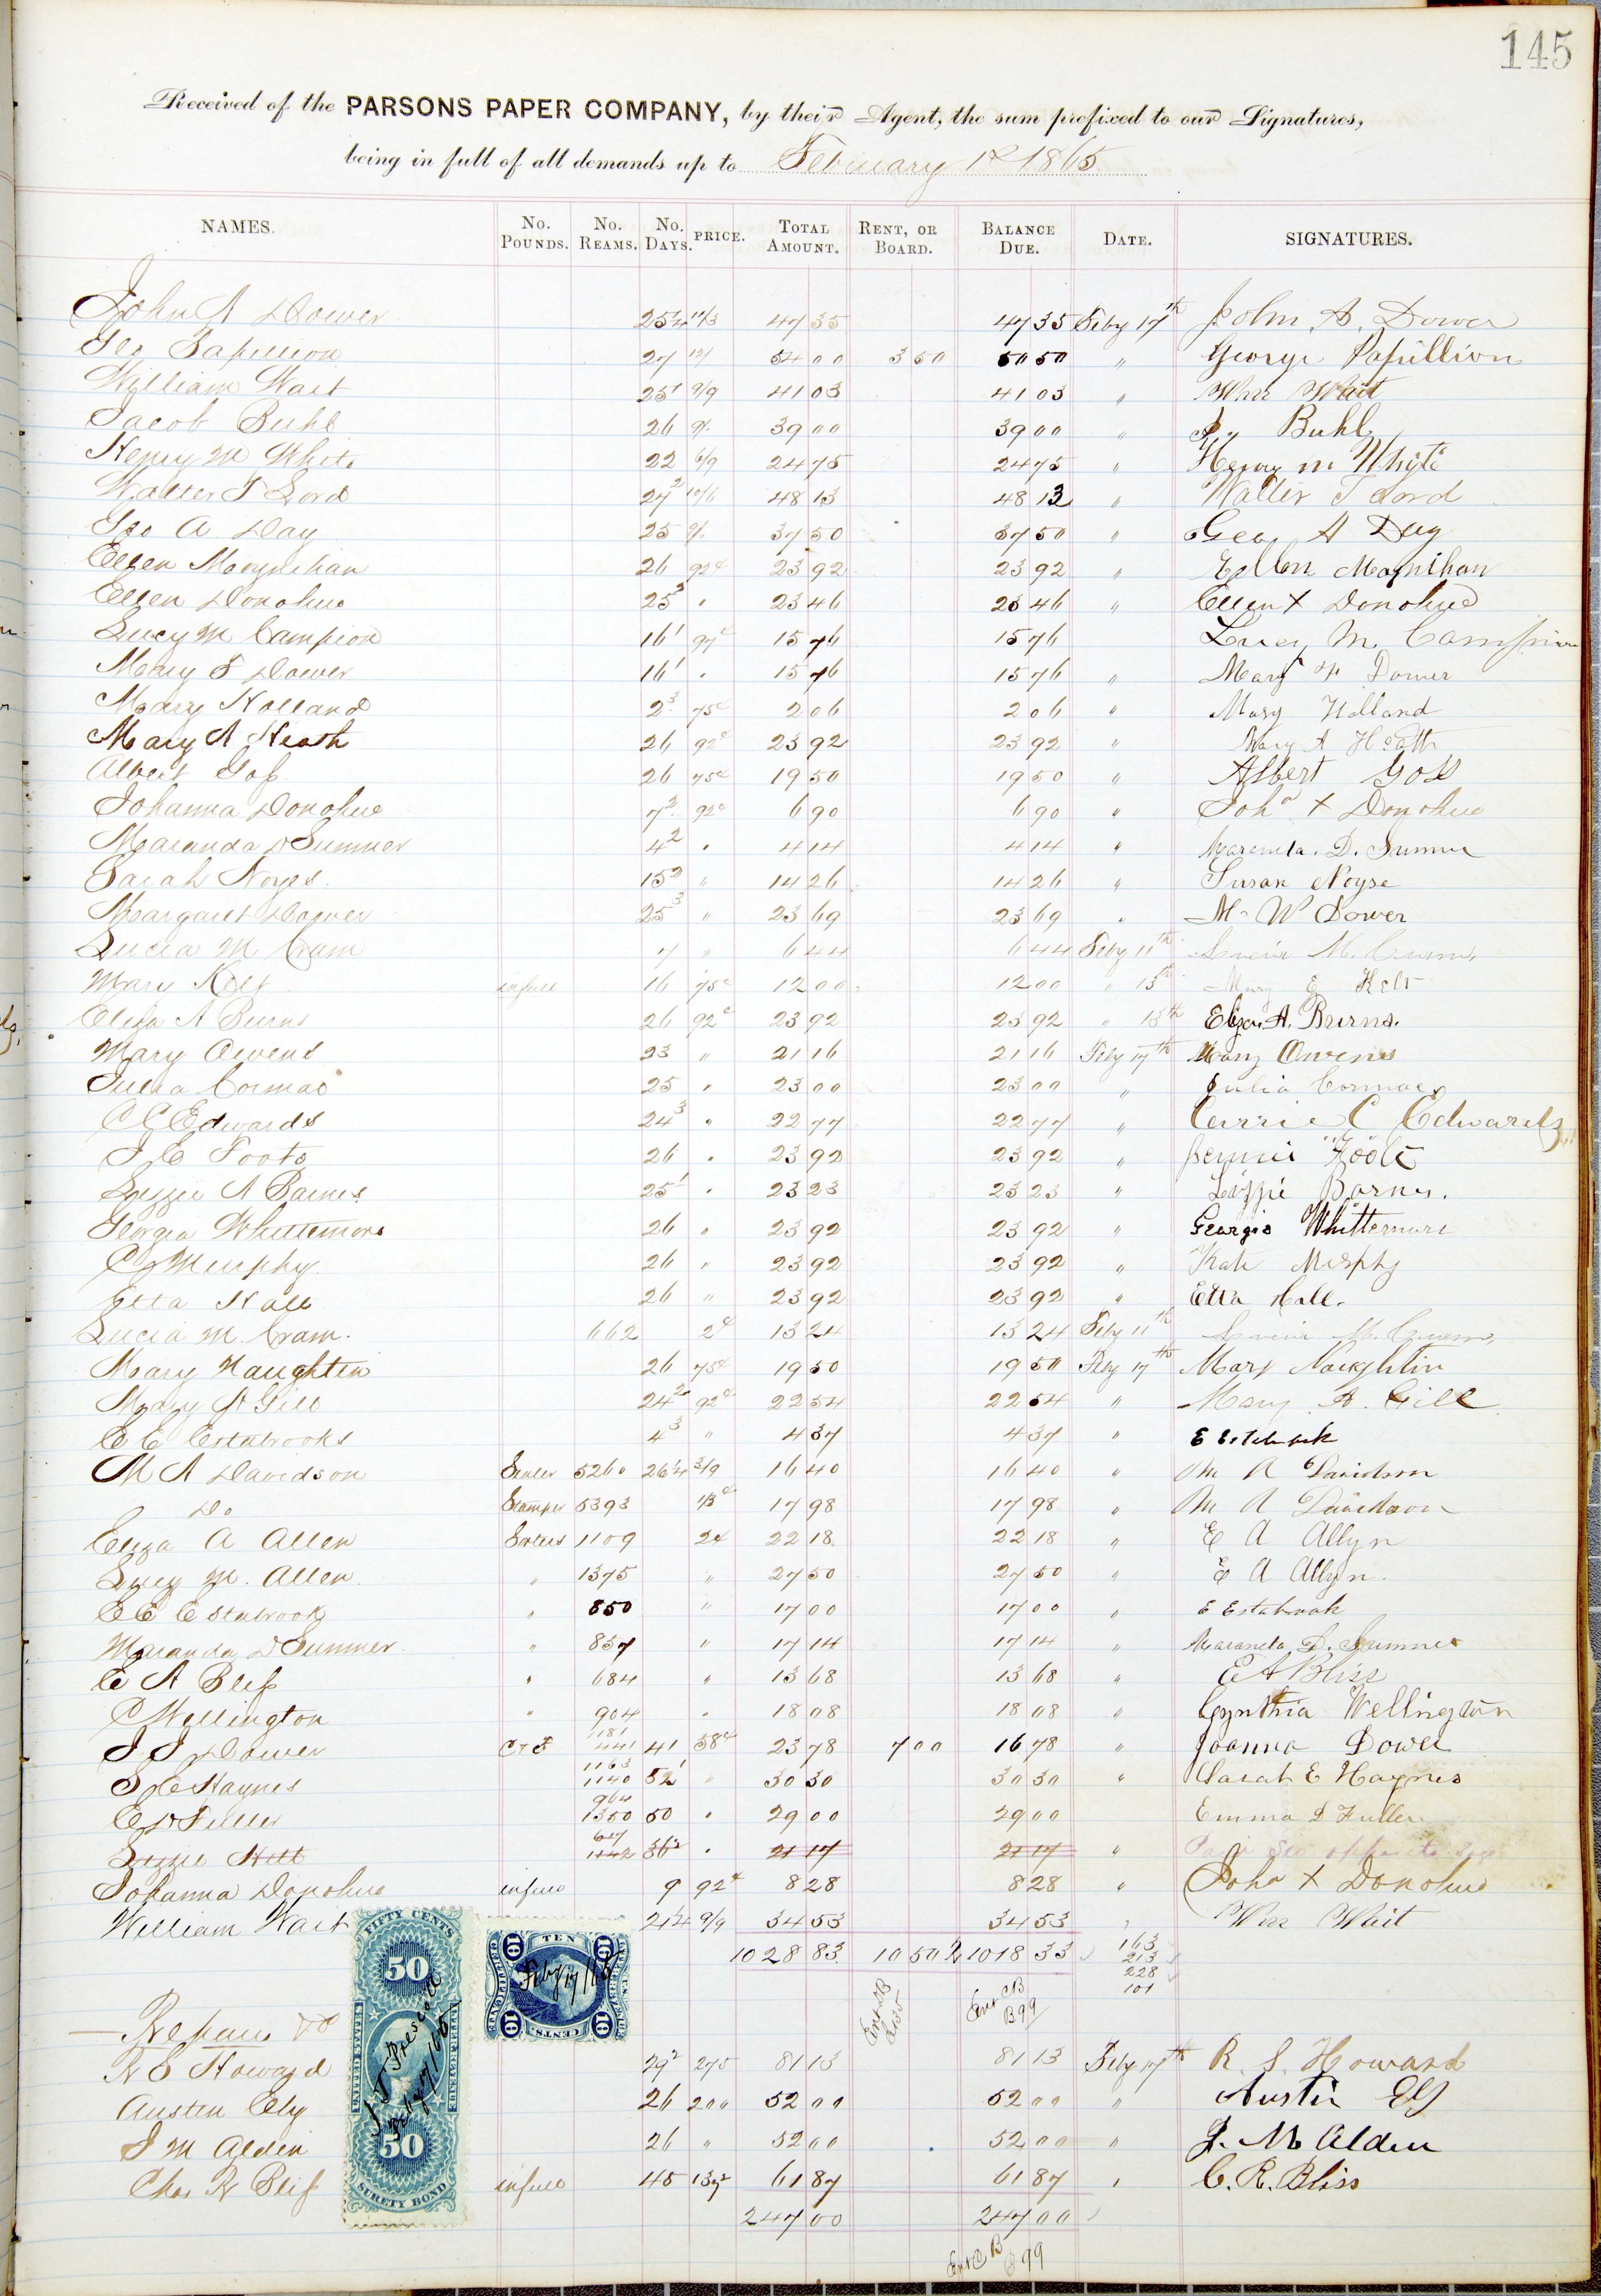 145
Received of the PARSONS PAPER COMPANY, by their Agent, the sum prefixed to our Signatures,
being in full of all demands up to February 1st 1865
NAMES. No. Pounds. No. Reams. No. Days. PRICE. Total Amount. Rent, or Board. Balance Due. Date. SIGNATURES.
John A Dower 25 1/4 47 35 47 35 Feby 17th John A. Dower
Geo Papillion 27 12/ 54 00 3 50 50 50 " George Papillion
William Wait 25 1 9/9 41 03 41 03 " Wm Wait
Jacob Buhl 26 9/ 39 00 39 00 " J. Buhl
Henry M White 22 6/9 24 75 24 75 " Henry M Whyte
Walter T Lord 27 2 10/6 48 13 48 13 Walter T Lord
Geo A Day 25 9/ 37 50 37 50 " Geo A Day
Ellen Moynihan 26 92c 23 92 23 92 " Ellen Moynihan
Ellen Donohue 25 2 " 23 46 23 46 " Ellen X Donohue
Lucy M Campion 16 1 97c 15 76 15 76 Lucy M. Campion
Mary F Dower 16 1 " 15 76 15 76 " Mary F Dower
Mary Holland 2 3 75c 2 06 2 06 " Mary Holland
Mary A Heath 26 92c 23 92 23 92 " Mary A Heath
Albert Goss 26 75c 19 50 19 50 " Albert Goss
Johanna Donohue 7 2 92c 6 90 6 90 " Joha X Donohue
Maranda D Sumner 4 2 " 4 14 4 14 " Maranda. D. Sumner
Sarah Noyes 15 2 " 14 26 14 26 " Susan Noyse
Margaret Dower 25 3 " 23 69 23 69 " M W Dower
Lucia M Cram 7 " 6 44 6 44 Feby 11th Lucia M. Cram
Mary Kelt infull 16 75c 12 00 12 00 " 13th Mary E Kelt
Eliza A Burns 26 92c 23 92 23 92 " 13th Eliza. A. Burns.
Mary Owens 23 " 21 16 21 16 Feby 17th Mary Owens
Julia Cormac 25 " 23 00 23 00 " Julia Cormac
C C Edwards 24 3 " 22 77 22 77 " Carrie C Edwards
J C Foote 26 " 23 92 23 92 " Jennie Foote
Lizzie A Barnes 25 1 " 23 23 23 23 " Lizzie Barnes.
Georgia Whittemore 26 " 23 92 23 92 " Georgia Whittemore
C Murphy 26 " 23 92 23 92 " Kate Murphy
Etta Hall 26 " 23 92 23 92 " Etta Hall.
Lucia M. Cram. 662 2c 13 24 13 24 Feby 11th Lucia M. Cram
Mary Naughtin 26 75c 19 50 19 50 Feby 17th Mary Naughtin
Mary A Gill 24 2 92c 22 54 22 54 " Mary A. Gill
E E Estabrooks 4 3 " 4 37 4 37 " E Estabrook
M A Davidson Sealer 5260 26 1/4 3/9 16 40 16 40 " M A Davidson
Do Stamper 5393 1/3c 17 98 17 98 " M A Davidson
Eliza A Allen Sorters 1109 2c 22 18 22 18 " E A Allyn
Lucy M. Allen " 1375 " 27 50 27 50 " E A Allyn.
E E Estabrook " 850 " 17 00 17 00 " E Estabrook
Maranda D Sumner " 857 " 17 14 17 14 " Maranda D. Sumner
E A Bliss " 684 " 13 68 13 68 " E A Bliss
C Wellington " 904 " 18 08 18 08 " Cynthia Wellington
J J Dower C & F 181 441 41 58c 23 78 7 00 16 78 " Joanna Dower
S E Haynes 1163 1140 52 1 " 30 30 30 30 " Sarah E Haynes
E D Fuller 964 1350 50 " 29 00 29 00 Emma D Fuller
Hill 617 1142 36 2 " 21 17 21 17 "
Johanna Donohue infull 9 92c 8 28 8 28 " Joha X Donohue
William Wait 21 1/4 9/9 34 53 34 53 " Wm Wait
1028 83 10 50 1018 33
163
213
228
101
Ent CB
Ent CB
B 99
FIFTY CENTS
50
UNITED STATES
INTER. REVENUE
Feby 17/65
50
SURETY BOND
TEN
10 10
Feby 17/65
CERTIFICATE
CENTS.
10 10
Repairs &c
R S Howard 29 2 275 81 13 81 13 Feby 17th R. S. Howard
Austin Ely 26 200 52 00 52 00 " Austin Ely
J M Alden 26 " 52 00 52 00 " J. M. Alden
Chas R Bliss infull 45 137 1/2 61 87 61 87 " C. R. Bliss
247 00 247 00
Ent C B
99